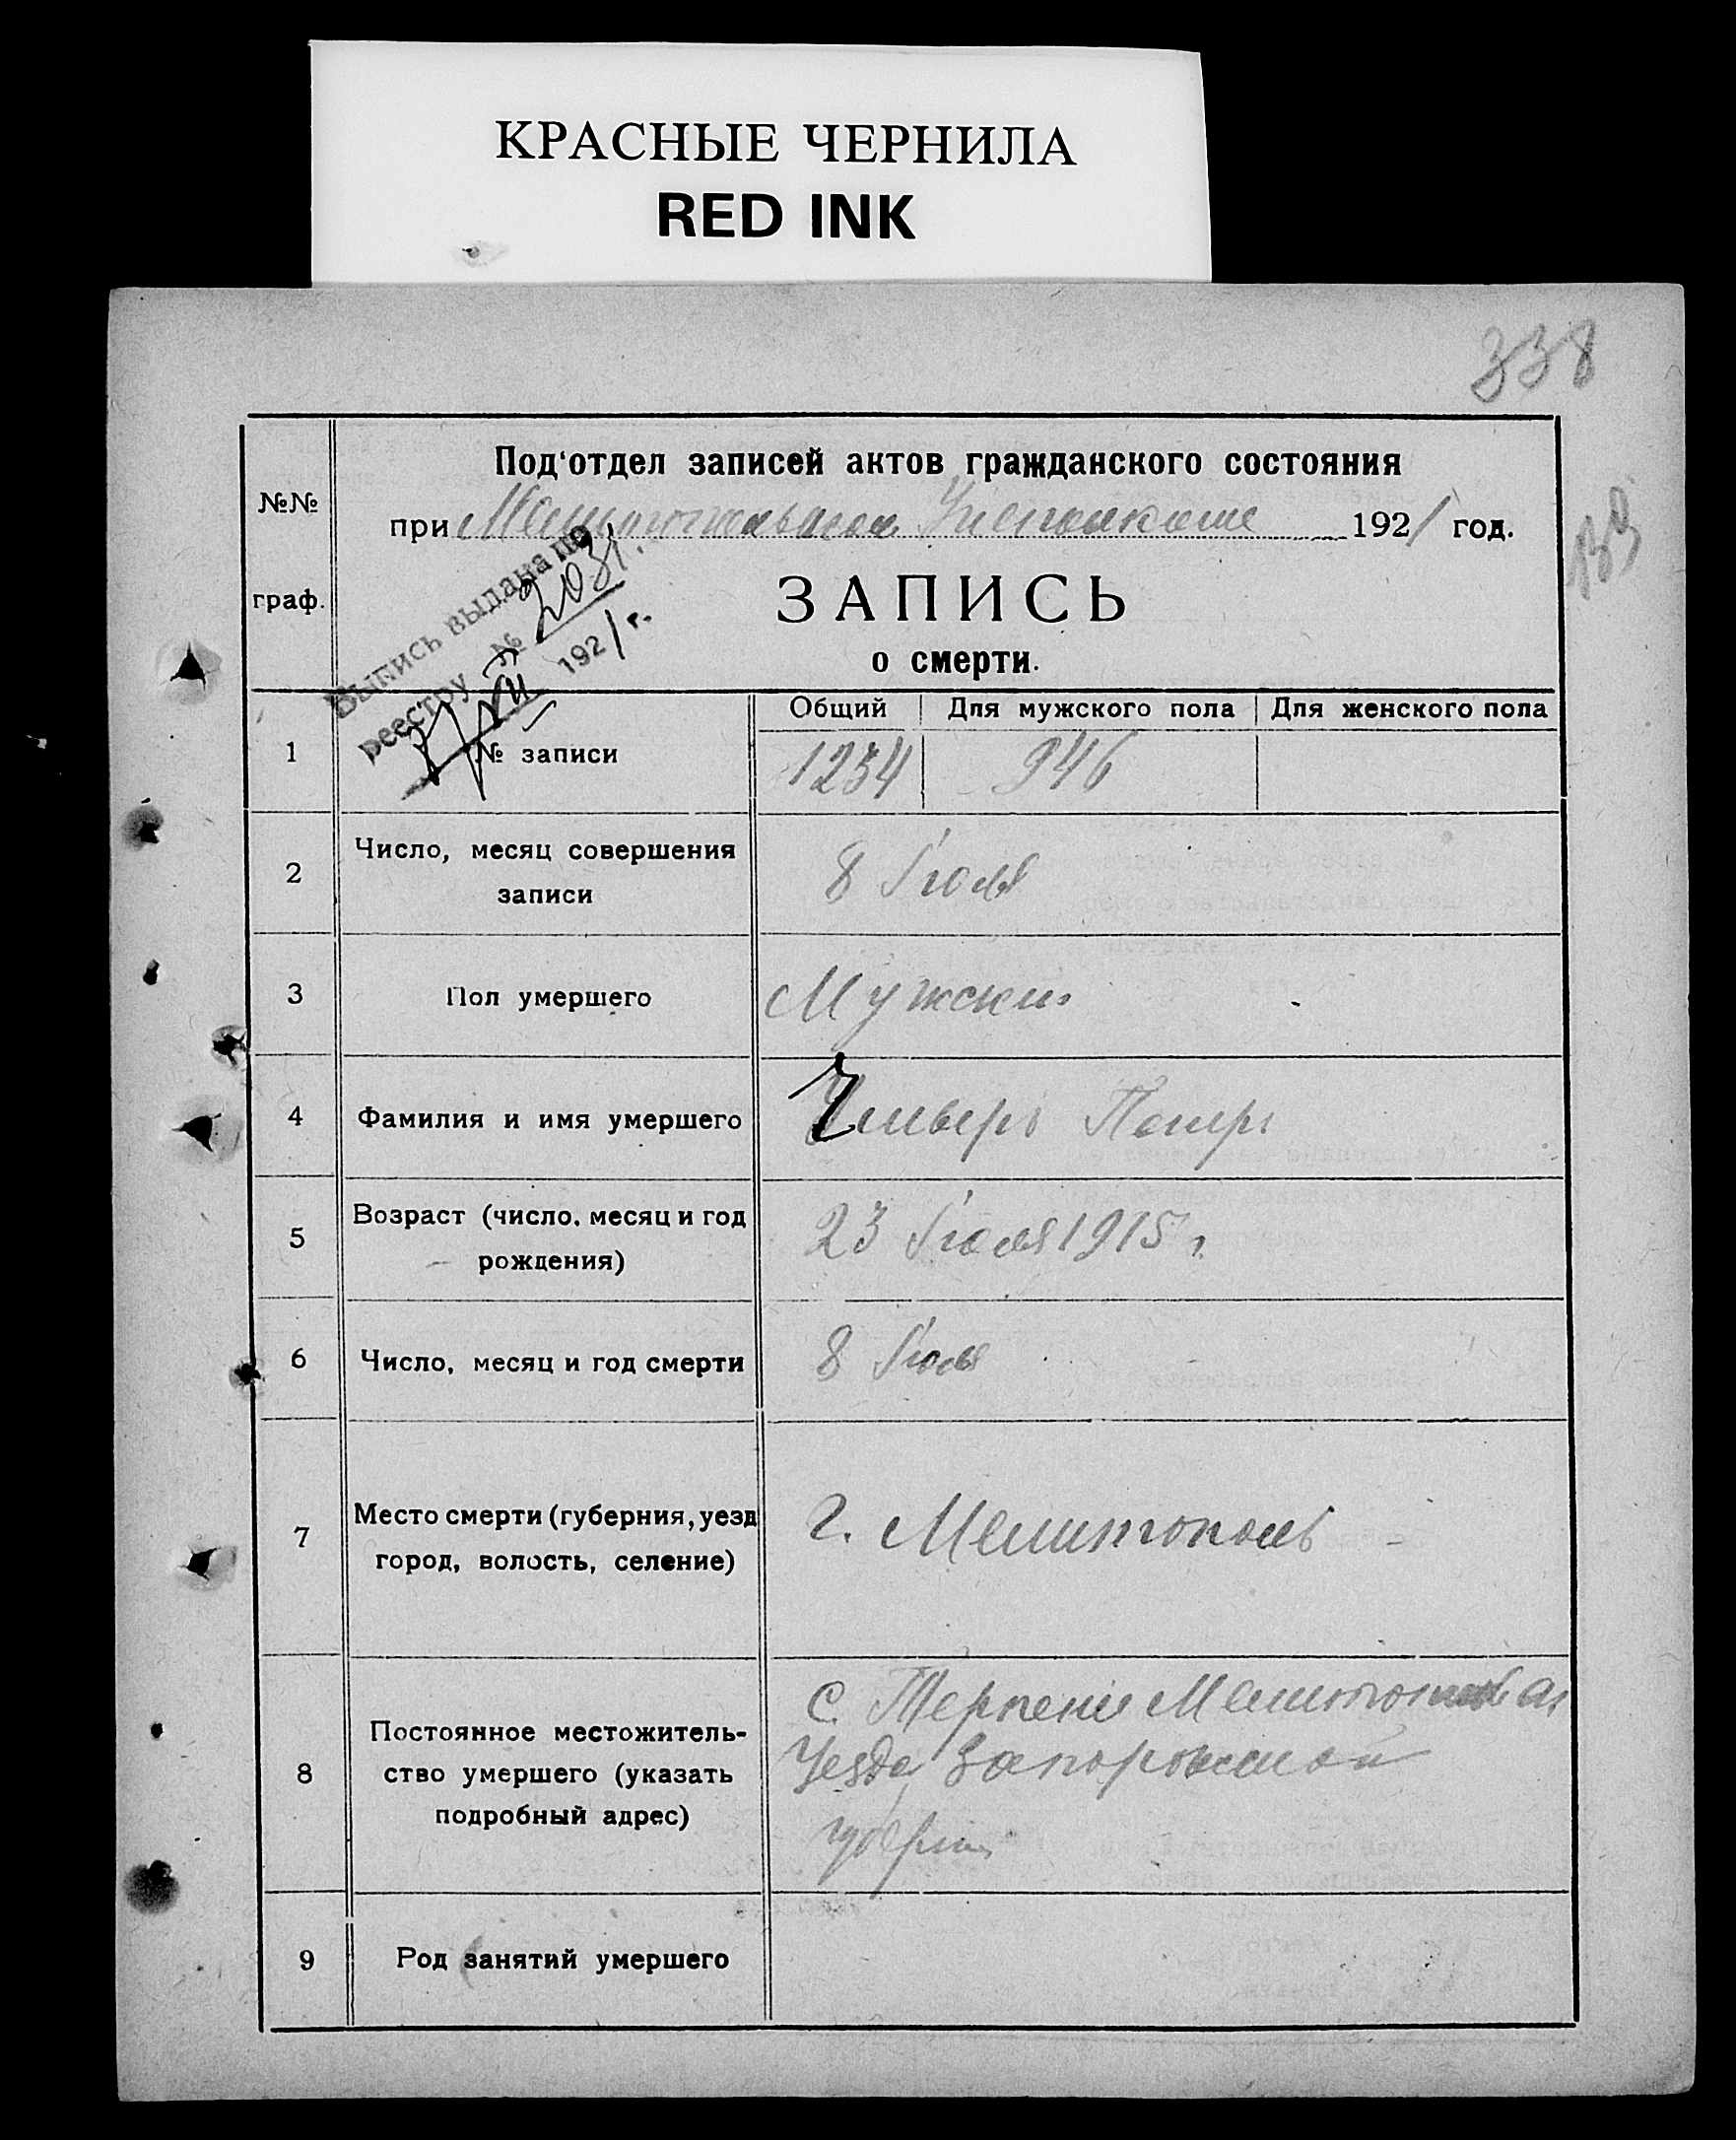 КРАСНЫЕ ЧЕРНИЛА
RED INK
338
Под‘отдел записей актов гражданского состояния
№№ граф.
при Мелитопольском 1921 год.
139
ЗАПИСЬ
о смерти.
Выпись выдана по
реестру № 2031
1921 г.
Общий Для мужского пола Для женского пола
1 № записи 1234 946
2 Число, месяц совершения
записи
8 Июля
3 Пол умершего Мужски
4 Фамилия и имя умершего Петр
5 Возраст (число, месяц и год
рождения)
23 Июля 1915 г.
6 Число, месяц и год смерти 8 Июля
7 Место смерти (губерния, уезд
город, волость, селение)
г. Мелитополь
8 Постоянное местожитель-
ство умершего (указать
подробный адрес)
с. Терпение
Уезда Запорожской
губерни
9 Род занятий умершего